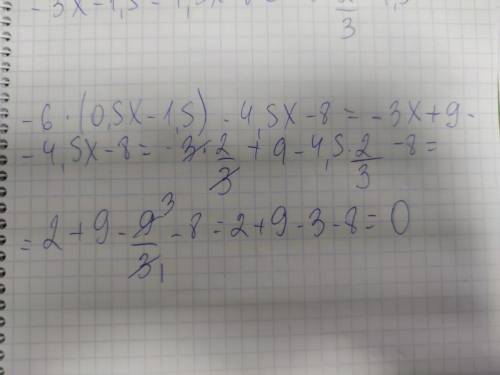 -6·(0,5x-1,5)-4,5x-8=-3x+9-
-4,5x-8=-3·2/3+9-4,5·2/3-8=
=2+9-9³/3₁-8=2+9-3-8=0